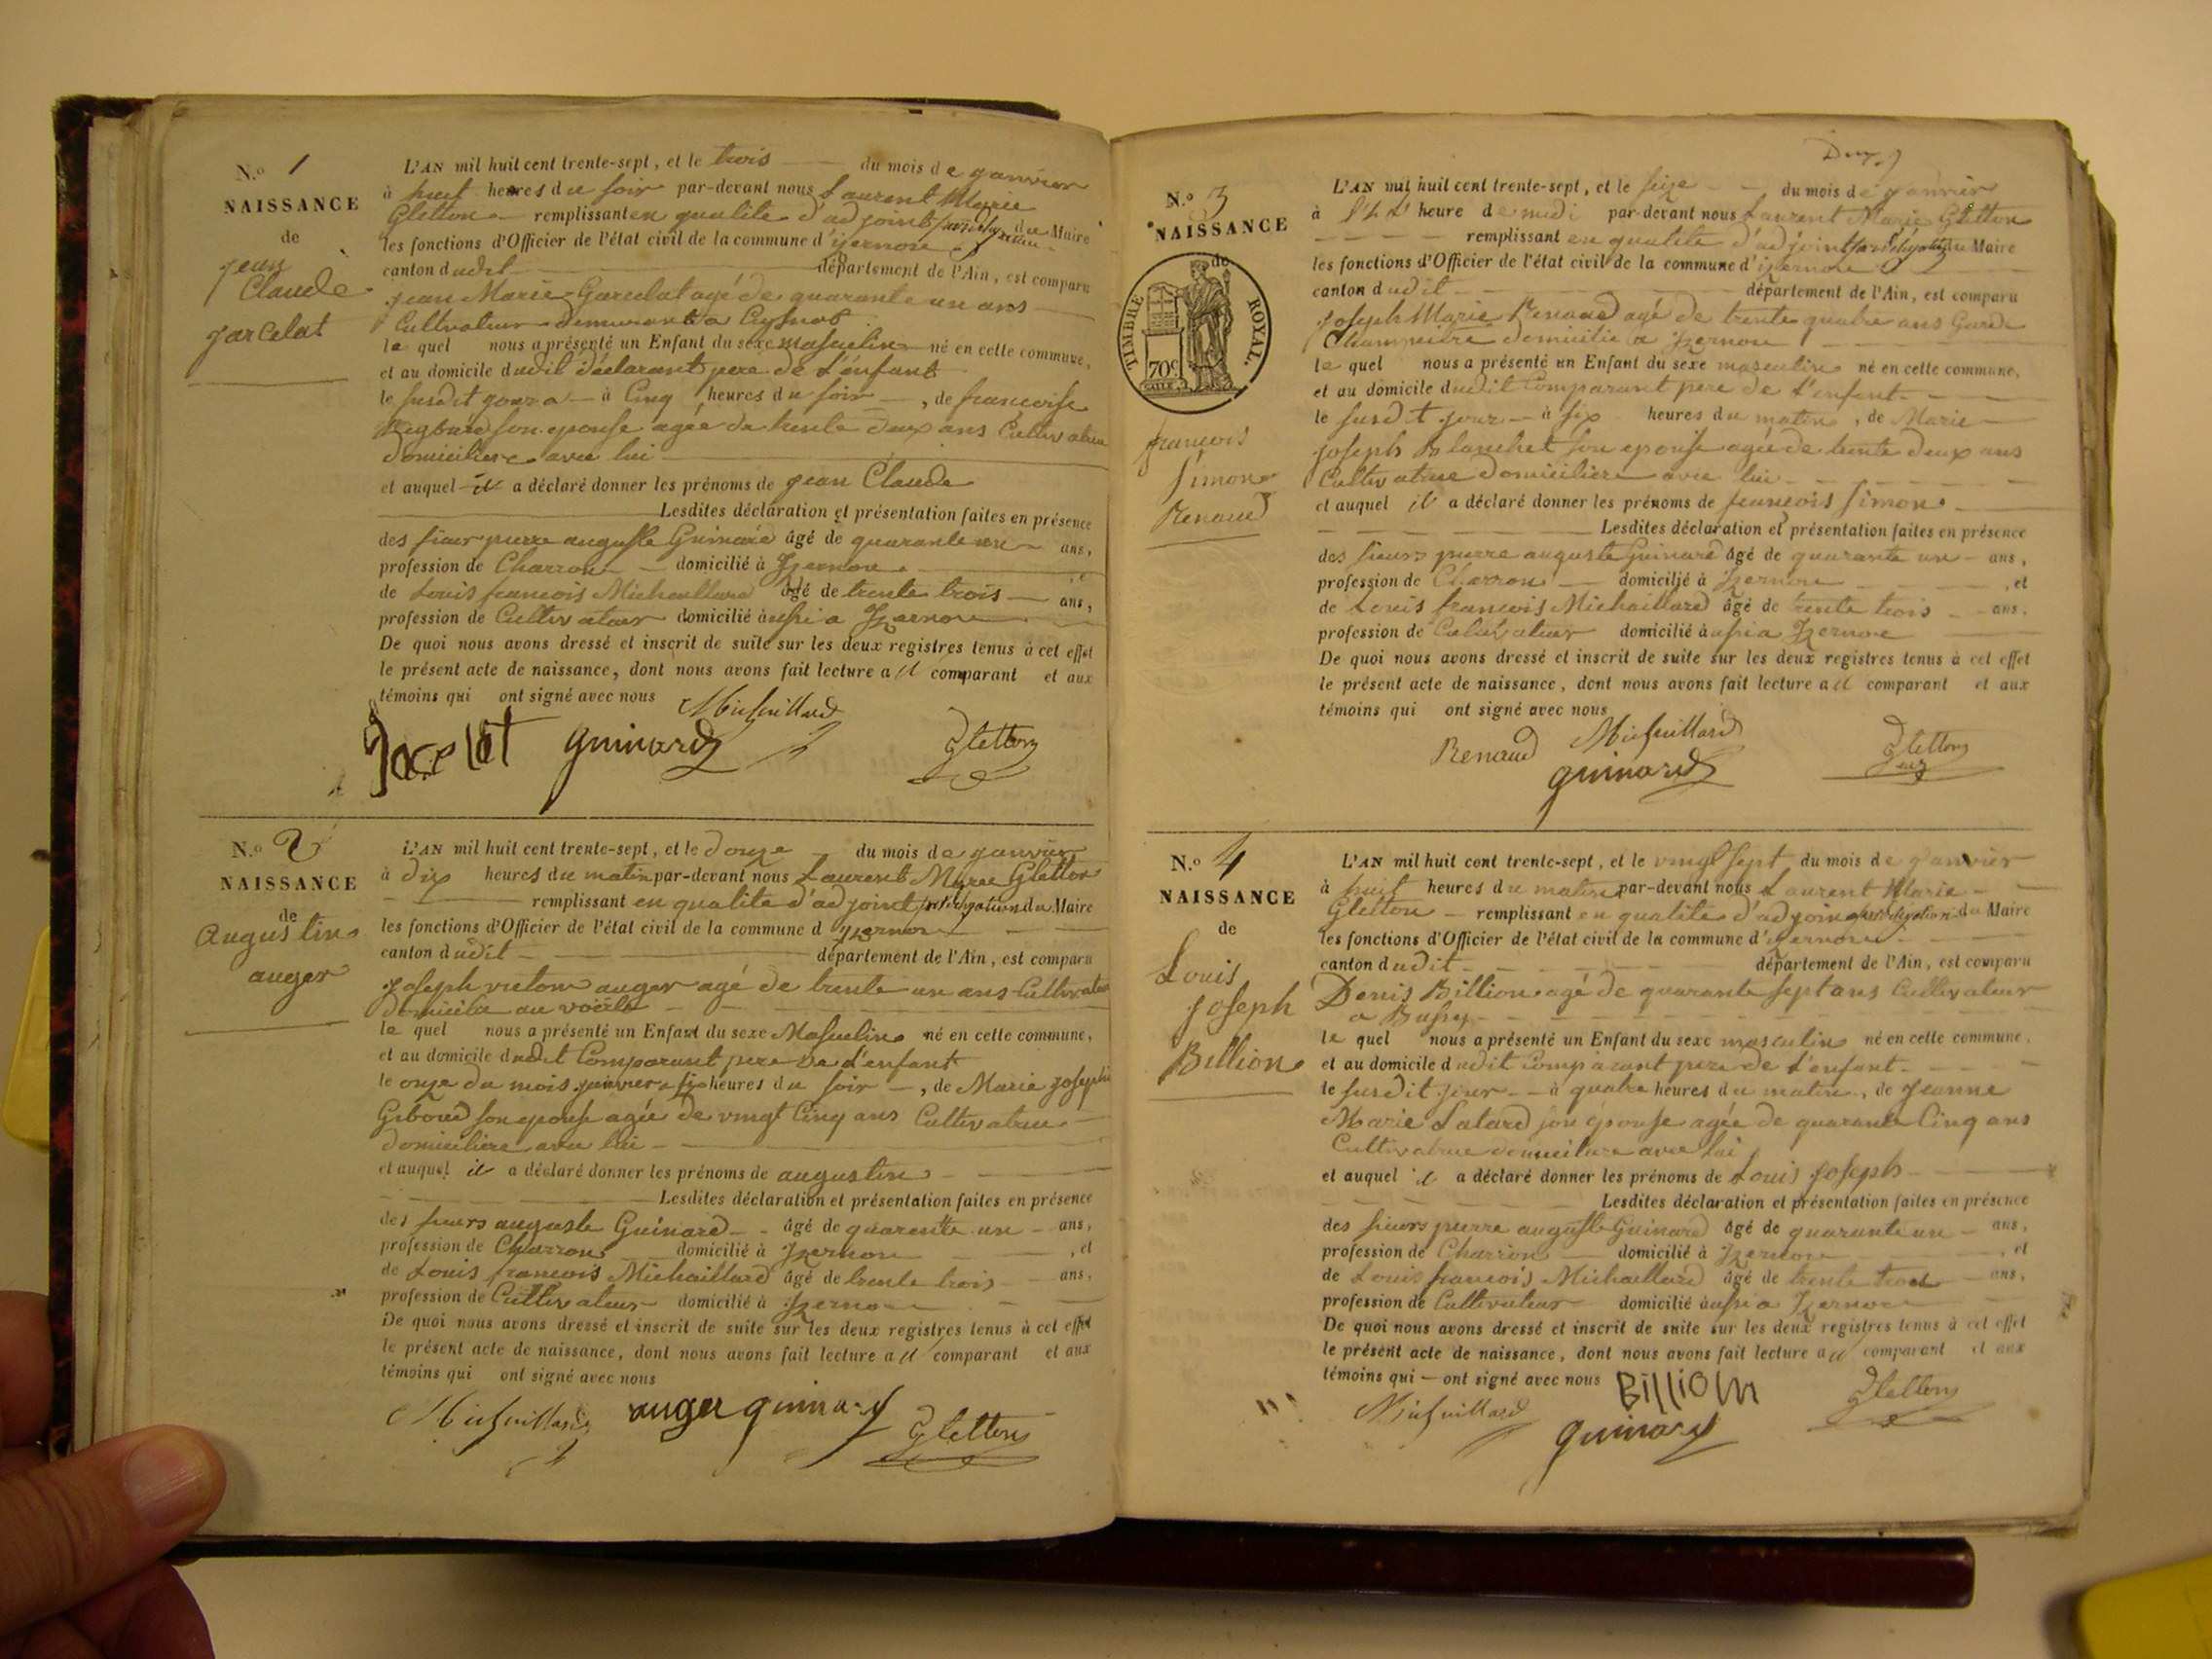 N.o 1
NAISSANCE
de
jean
Claude
jarcelat
L'AN mil huit cent trente-sept, et le trois du mois de janvier
à huit heures du soir par-devant nous Laurent Marie
Gletton remplissant en qualité d'adjoint du Maire
les fonctions d'Officier de l'état civil de la commune d'izernore
canton dudit département de l'Ain, est comparu
jean Marie agé de quarante un ans
Cultivateur demeurant a
le quel nous a présenté un Enfant du sexe masculin né en cette commune,
et au domicile dudit déclarant pere de l'enfant
le susdit jour a à cinq heures du soir, de francoise
son epouse agée de trente deux ans Cultivatrice
domiciliere avec lui
et auquel il a déclaré donner les prénoms de jean Claude
Lesdites déclaration et présentation faites en présence
des sieur pierre auguste Guinard âgé de quarante un ans,
profession de Charron domicilié à Izernore, et
de Louis francois Michaillard âgé de trente trois ans,
profession de Cultivateur domicilié aussi a Izernore
De quoi nous avons dressé et inscrit de suite sur les deux registres tenus à cet effet
le présent acte de naissance, dont nous avons fait lecture au comparant et aux
témoins qui ont signé avec nous
Michaillard
guinard
Gletton
N.o 2
NAISSANCE
de
Augustin
auger
L'AN mil huit cent trente-sept, et le douze du mois de janvier
à dix heures du matin par-devant nous Laurent Marie Gletton
remplissant en qualité d'adjoint par délégation du Maire
les fonctions d'Officier de l'état civil de la commune d'izernore
canton dudit département de l'Ain, est comparu
joseph victor auger agé de trente un ans Cultivateur
au
le quel nous a présenté un Enfant du sexe Masculin né en cette commune,
et au domicile dudit Comparant pere de l'enfant
le onze du mois janvier a six heures du soir, de Marie josephe
son epouse agée de vingt Cinq ans Cultivatrice
domiciliere avec lui
et auquel il a déclaré donner les prénoms de augustin
Lesdites déclaration et présentation faites en présence
des sieurs auguste Guinard âgé de quarente un ans,
profession de Charron domicilié à Izernore, et
de Louis francois Michaillard âgé de trente trois ans,
profession de Cultivateur domicilié à Izernore
De quoi nous avons dressé et inscrit de suite sur les deux registres tenus à cet effet
le présent acte de naissance, dont nous avons fait lecture au comparant et aux
témoins qui ont signé avec nous
Michaillard auger guinard Gletton
N.o 3
NAISSANCE
de
TIMBRE ROYAL.
70c
francois
Simon
Renaud
L'AN mil huit cent trente-sept, et le seize du mois de janvier
à heure de midi par-devant nous Laurent Marie Gletton
remplissant en qualité d'adjoint par délégation du Maire
les fonctions d'Officier de l'état civil de la commune d'izernore
canton dudit département de l'Ain, est comparu
joseph Marie Renaud agé de trente quatre ans Garde
Champetre domicilié a Izernore
le quel nous a présenté un Enfant du sexe masculin né en cette commune,
et au domicile dudit Comparant pere de l'enfant
le susdit jour à six heures du matin, de Marie
joseph Blanchet son epouse agée de trente deux ans
Cultivatrice domiciliere avec lui
et auquel il a déclaré donner les prénoms de francois Simon
Lesdites déclaration et présentation faites en présence
des sieurs pierre auguste Guinard âgé de quarante un ans,
profession de Charron domicilié à Izernore, et
de Louis francois Michaillard âgé de trente trois ans,
profession de Cultivateur domicilié aussi a Izernore
De quoi nous avons dressé et inscrit de suite sur les deux registres tenus à cet effet
le présent acte de naissance, dont nous avons fait lecture au comparant et aux
témoins qui ont signé avec nous
Renaud Michaillard
guinard
Gletton
N.o 4
NAISSANCE
de
Louis
joseph
Billion
L'AN mil huit cent trente-sept, et le vingt sept du mois de janvier
à huit heures du matin par-devant nous Laurent Marie
Gletton remplissant en qualité d'adjoint par délégation du Maire
les fonctions d'Officier de l'état civil de la commune d'izernore
canton dudit département de l'Ain, est comparu
Denis Billion agé de quarante sept ans Cultivateur
a Bussy
le quel nous a présenté un Enfant du sexe masculin né en cette commune,
et au domicile dudit Comparant pere de l'enfant
le susdit jour à quatre heures du matin, de jeanne
Marie son épouse agée de quarante Cinq ans
Cultivatrice domiciliere avec lui
et auquel il a déclaré donner les prénoms de Louis joseph
Lesdites déclaration et présentation faites en présence
des sieurs pierre auguste Guinard âgé de quarante un ans,
profession de Charron domicilié à Izernore, et
de Louis francois Michaillard âgé de trente trois ans,
profession de Cultivateur domicilié aussi a Izernore
De quoi nous avons dressé et inscrit de suite sur les deux registres tenus à cet effet
le présent acte de naissance, dont nous avons fait lecture au comparant et aux
témoins qui ont signé avec nous Billion
Michaillard
guinard
Gletton